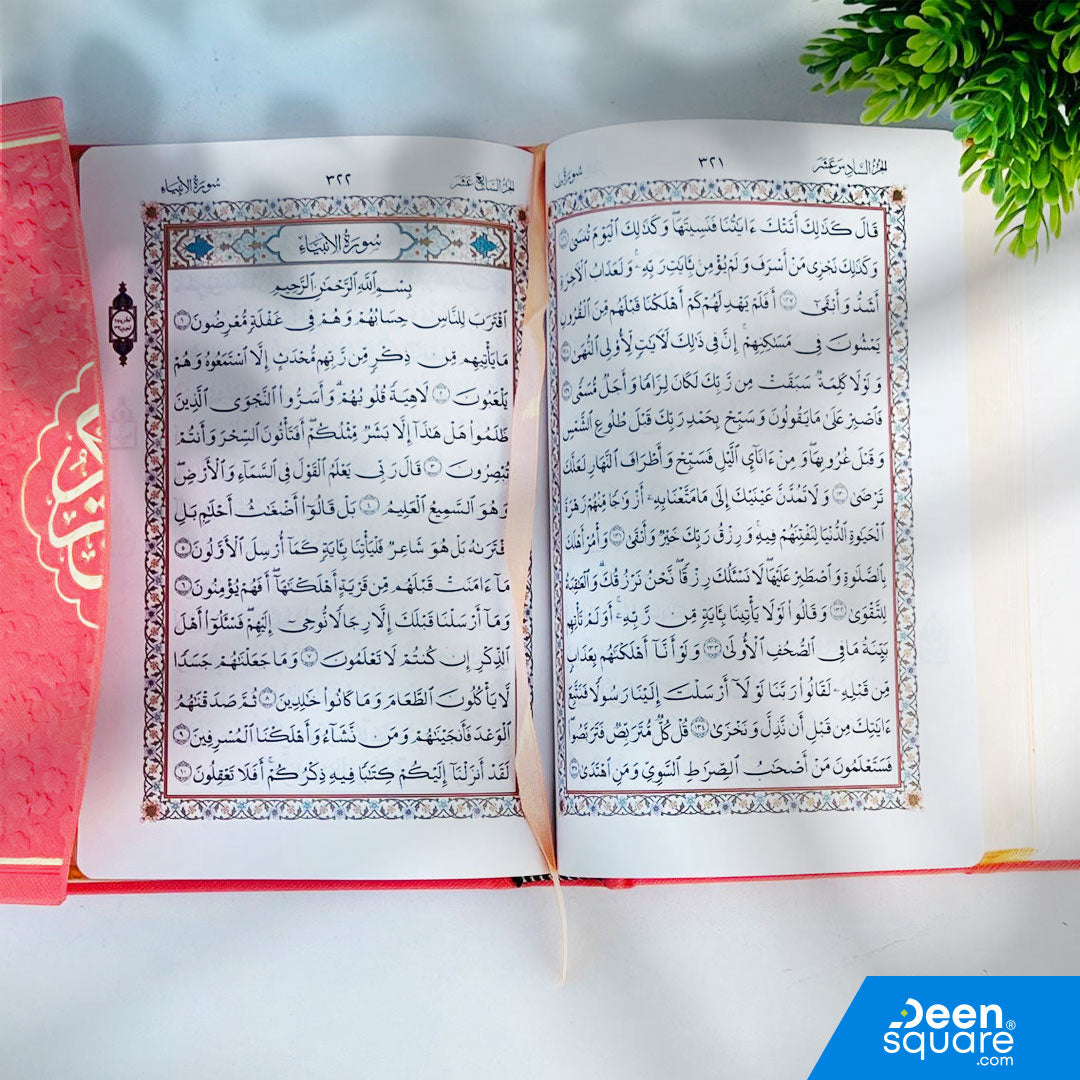 الجُزءُ السَّادِسَ عَشَرَ ٣٢١ سُورَةُ
قَالَ كَذَٰلِكَ أَتَتْكَ ءَايَٰتُنَا فَنَسِيتَهَا ۖ وَكَذَٰلِكَ ٱلْيَوْمَ تُنسَىٰ
وَكَذَٰلِكَ نَجْزِى مَنْ أَسْرَفَ وَلَمْ يُؤْمِنۢ بِـَٔايَٰتِ رَبِّهِۦ ۚ وَلَعَذَابُ ٱلْءَاخِرَةِ
أَشَدُّ وَأَبْقَىٰٓ ١٢٧ أَفَلَمْ يَهْدِ لَهُمْ كَمْ أَهْلَكْنَا قَبْلَهُم مِّنَ ٱلْقُرُونِ
يَمْشُونَ فِى مَسَٰكِنِهِمْ ۗ إِنَّ فِى ذَٰلِكَ لَءَايَٰتٍ لِّأُو۟لِى ٱلنُّهَىٰ
وَلَوْلَا كَلِمَةٌ سَبَقَتْ مِن رَّبِّكَ لَكَانَ لِزَامًا وَأَجَلٌ مُّسَمًّى
فَٱصْبِرْ عَلَىٰ مَا يَقُولُونَ وَسَبِّحْ بِحَمْدِ رَبِّكَ قَبْلَ طُلُوعِ ٱلشَّمْسِ
وَقَبْلَ غُرُوبِهَا ۖ وَمِنْ ءَانَآئِ ٱلَّيْلِ فَسَبِّحْ وَأَطْرَافَ ٱلنَّهَارِ لَعَلَّكَ
تَرْضَىٰ ١٣٠ وَلَا تَمُدَّنَّ عَيْنَيْكَ إِلَىٰ مَا مَتَّعْنَا بِهِۦٓ أَزْوَٰجًا مِّنْهُمْ زَهْرَةَ
ٱلْحَيَوٰةِ ٱلدُّنْيَا لِنَفْتِنَهُمْ فِيهِ ۚ وَرِزْقُ رَبِّكَ خَيْرٌ وَأَبْقَىٰ ١٣١ وَأْمُرْ أَهْلَكَ
بِٱلصَّلَوٰةِ وَٱصْطَبِرْ عَلَيْهَا ۖ لَا نَسْـَٔلُكَ رِزْقًا ۖ نَّحْنُ نَرْزُقُكَ ۗ وَٱلْعَٰقِبَةُ
لِلتَّقْوَىٰ ١٣٢ وَقَالُوا۟ لَوْلَا يَأْتِينَا بِـَٔايَةٍ مِّن رَّبِّهِۦٓ ۚ أَوَلَمْ تَأْتِهِم
بَيِّنَةُ مَا فِى ٱلصُّحُفِ ٱلْأُولَىٰ ١٣٣ وَلَوْ أَنَّآ أَهْلَكْنَٰهُم بِعَذَابٍ
مِّن قَبْلِهِۦ لَقَالُوا۟ رَبَّنَا لَوْلَآ أَرْسَلْتَ إِلَيْنَا رَسُولًا فَنَتَّبِعَ
ءَايَٰتِكَ مِن قَبْلِ أَن نَّذِلَّ وَنَخْزَىٰ ١٣٤ قُلْ كُلٌّ مُّتَرَبِّصٌ فَتَرَبَّصُوا۟ ۖ
فَسَتَعْلَمُونَ مَنْ أَصْحَٰبُ ٱلصِّرَٰطِ ٱلسَّوِىِّ وَمَنِ ٱهْتَدَىٰ
الجُزءُ السَّابِعَ عَشَرَ ٣٢٢ سُورَةُ الأنبِيَاءِ
سُورَةُ الأنبِيَاءِ
بِسْمِ ٱللَّهِ ٱلرَّحْمَٰنِ ٱلرَّحِيمِ
ٱقْتَرَبَ لِلنَّاسِ حِسَابُهُمْ وَهُمْ فِى غَفْلَةٍ مُّعْرِضُونَ ١
مَا يَأْتِيهِم مِّن ذِكْرٍ مِّن رَّبِّهِم مُّحْدَثٍ إِلَّا ٱسْتَمَعُوهُ وَهُمْ
يَلْعَبُونَ ٢ لَاهِيَةً قُلُوبُهُمْ ۗ وَأَسَرُّوا۟ ٱلنَّجْوَى ٱلَّذِينَ
ظَلَمُوا۟ هَلْ هَٰذَآ إِلَّا بَشَرٌ مِّثْلُكُمْ ۖ أَفَتَأْتُونَ ٱلسِّحْرَ وَأَنتُمْ
تُبْصِرُونَ ٣ قَالَ رَبِّى يَعْلَمُ ٱلْقَوْلَ فِى ٱلسَّمَآءِ وَٱلْأَرْضِ ۖ
وَهُوَ ٱلسَّمِيعُ ٱلْعَلِيمُ ٤ بَلْ قَالُوٓا۟ أَضْغَٰثُ أَحْلَٰمٍۭ بَلِ
ٱفْتَرَىٰهُ بَلْ هُوَ شَاعِرٌ فَلْيَأْتِنَا بِـَٔايَةٍ كَمَآ أُرْسِلَ ٱلْأَوَّلُونَ ٥
مَآ ءَامَنَتْ قَبْلَهُم مِّن قَرْيَةٍ أَهْلَكْنَٰهَآ ۖ أَفَهُمْ يُؤْمِنُونَ ٦
وَمَآ أَرْسَلْنَا قَبْلَكَ إِلَّا رِجَالًا نُّوحِىٓ إِلَيْهِمْ ۖ فَسْـَٔلُوٓا۟ أَهْلَ
ٱلذِّكْرِ إِن كُنتُمْ لَا تَعْلَمُونَ ٧ وَمَا جَعَلْنَٰهُمْ جَسَدًا
لَّا يَأْكُلُونَ ٱلطَّعَامَ وَمَا كَانُوا۟ خَٰلِدِينَ ٨ ثُمَّ صَدَقْنَٰهُمُ
ٱلْوَعْدَ فَأَنجَيْنَٰهُمْ وَمَن نَّشَآءُ وَأَهْلَكْنَا ٱلْمُسْرِفِينَ ٩
لَقَدْ أَنزَلْنَآ إِلَيْكُمْ كِتَٰبًا فِيهِ ذِكْرُكُمْ ۖ أَفَلَا تَعْقِلُونَ ١٠
Deen
square®
.com